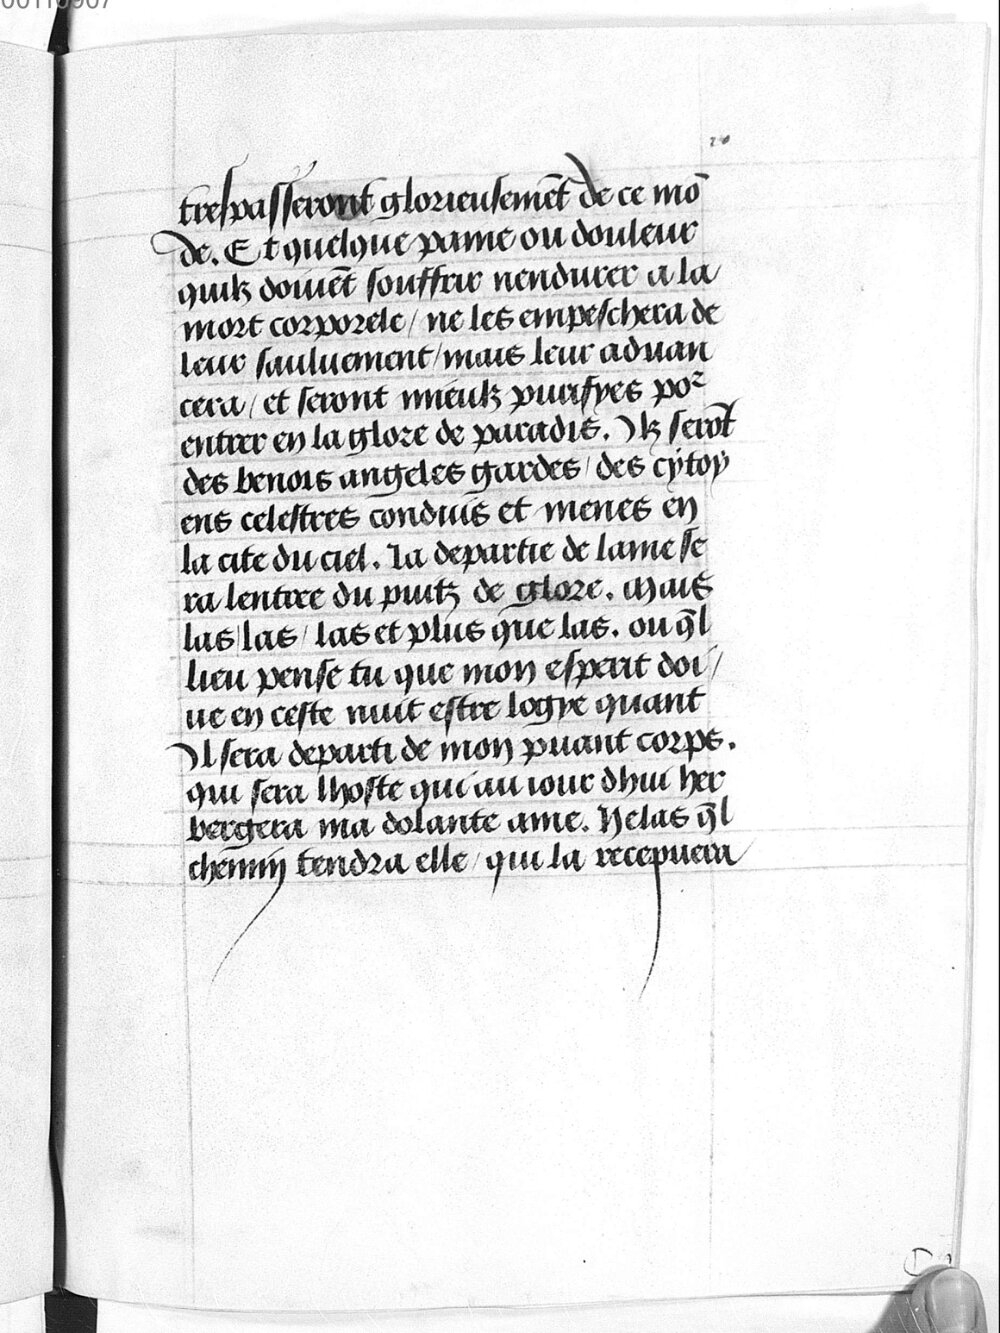 trespasseront glorieusemēt de ce mō
de. Et quelque paine ou douleur
quilz doiuēt souffrir nendurer a la
mort corporele / ne les empeschera de
leur sauluement / mais leur aduan
cera / et seront mieulz purifyes por
entrer en la glore de paradis. Ilz serōt
des benois angeles gardes / des cytoy
ens celestres conduis et menes en
la cite du ciel. La departie de lame se
ra lentree du puitz de glore. Mais
las / las / las et plus que las. ou q̄l
lieu pense tu que mon esperit doi /
ue en ceste nuit estre logye quant
Il sera departi de mon puant corps.
qui sera lhoste qui au iour dhui her
bergera ma dolante ame. Helas q̄l
chemin tendra elle / qui la recepuera